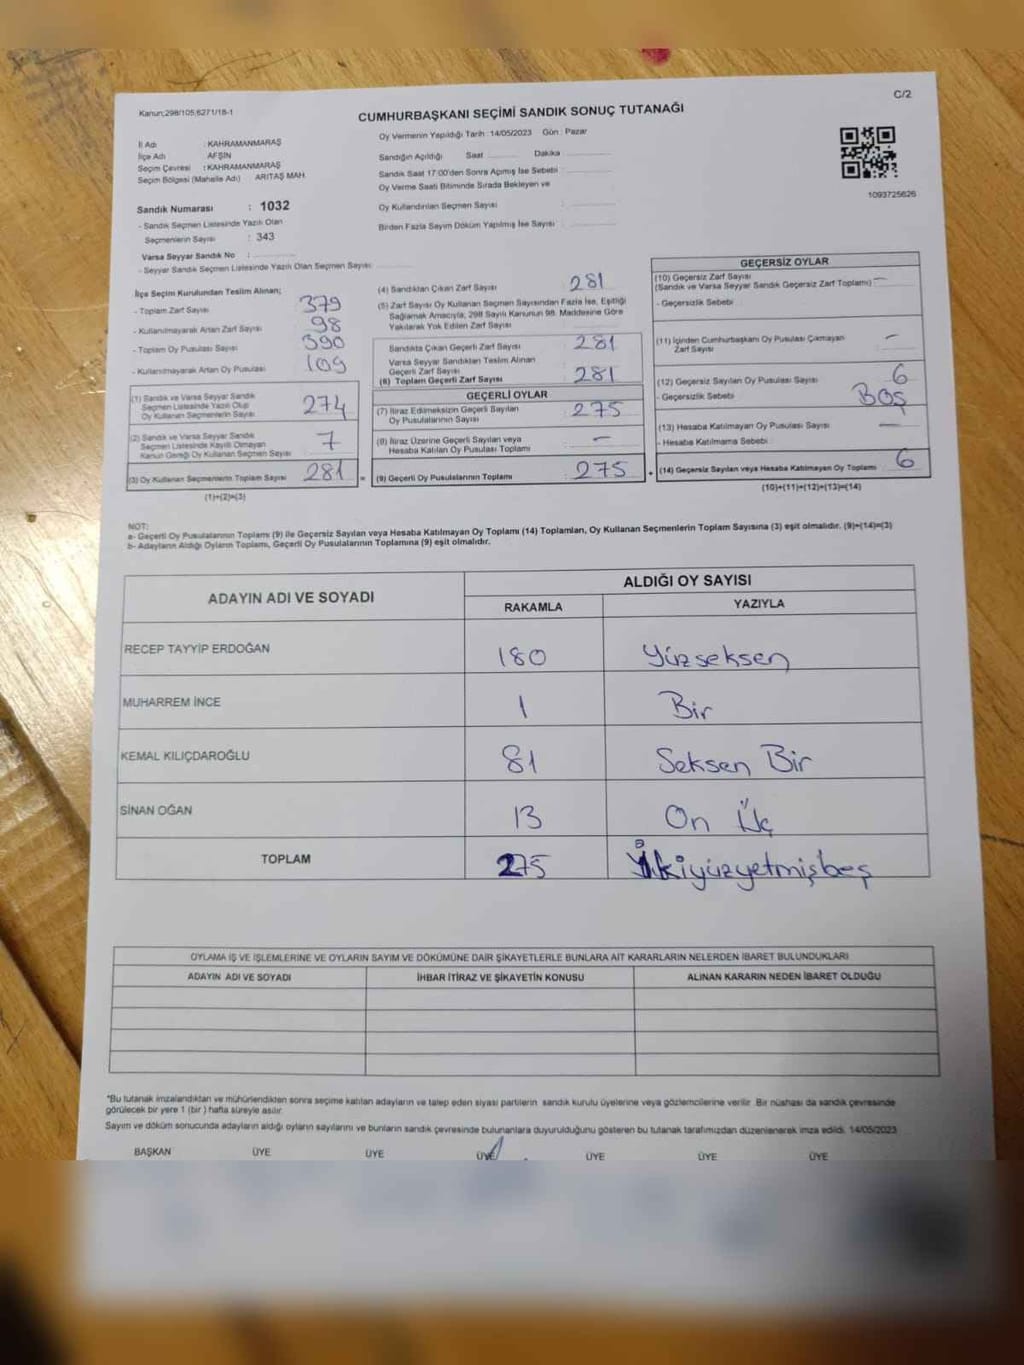 Kanun;298/105,6271/18-1
C/2
CUMHURBAŞKANI SEÇİMİ SANDIK SONUÇ TUTANAĞI
Oy Vermenin Yapıldığı Tarih : 14/05/2023 Gün : Pazar
İl Adı : KAHRAMANMARAŞ
İlçe Adı : AFŞİN
Seçim Çevresi : KAHRAMANMARAŞ
Seçim Bölgesi (Mahalle Adı) ARITAŞ MAH.
Sandığın Açıldığı Saat Dakika
Sandık Saat 17:00'den Sonra Açılmış İse Sebebi :
Oy Verme Saati Bitiminde Sırada Bekleyen ve
Oy Kullandırılan Seçmen Sayısı
Birden Fazla Sayım Döküm Yapılmış İse Sayısı :
1093725626
Sandık Numarası : 1032
- Sandık Seçmen Listesinde Yazılı Olan
Seçmenlerin Sayısı : 343
Varsa Seyyar Sandık No :
- Seyyar Sandık Seçmen Listesinde Yazılı Olan Seçmen Sayısı:
İlçe Seçim Kurulundan Teslim Alınan;
- Toplam Zarf Sayısı 379
- Kullanılmayarak Artan Zarf Sayısı 98
- Toplam Oy Pusulası Sayısı 390
- Kullanılmayarak Artan Oy Pusulası 109
(1) Sandık ve Varsa Seyyar Sandık
Seçmen Listesinde Yazılı Olup
Oy Kullanan Seçmenlerin Sayısı 274
(2) Sandık ve Varsa Seyyar Sandık
Seçmen Listesinde Kayıtlı Olmayan
Kanun Gereği Oy Kullanan Seçmen Sayısı 7
(3) Oy Kullanan Seçmenlerin Toplam Sayısı 281 =
(1)+(2)=(3)
(4) Sandıktan Çıkan Zarf Sayısı 281
(5) Zarf Sayısı Oy Kullanan Seçmen Sayısından Fazla İse, Eşitliği
Sağlamak Amacıyla, 298 Sayılı Kanunun 98. Maddesine Göre
Yakılarak Yok Edilen Zarf Sayısı :
Sandıkta Çıkan Geçerli Zarf Sayısı : 281
Varsa Seyyar Sandıktan Teslim Alınan
Geçerli Zarf Sayısı
(6) Toplam Geçerli Zarf Sayısı : 281
GEÇERLİ OYLAR
(7) İtiraz Edilmeksizin Geçerli Sayılan
Oy Pusulalarının Sayısı : 275
(8) İtiraz Üzerine Geçerli Sayılan veya
Hesaba Katılan Oy Pusulası Toplamı : —
(9) Geçerli Oy Pusulalarının Toplamı : 275 +
GEÇERSİZ OYLAR
(10) Geçersiz Zarf Sayısı
(Sandık ve Varsa Seyyar Sandık Geçersiz Zarf Toplamı) —
- Geçersizlik Sebebi :
(11) İçinden Cumhurbaşkanı Oy Pusulası Çıkmayan
Zarf Sayısı —
(12) Geçersiz Sayılan Oy Pusulası Sayısı 6
- Geçersizlik Sebebi : BOŞ
(13) Hesaba Katılmayan Oy Pusulası Sayısı —
- Hesaba Katılmama Sebebi :
(14) Geçersiz Sayılan veya Hesaba Katılmayan Oy Toplamı 6
(10)+(11)+(12)+(13)=(14)
NOT:
a- Geçerli Oy Pusulalarının Toplamı (9) ile Geçersiz Sayılan veya Hesaba Katılmayan Oy Toplamı (14) Toplamları, Oy Kullanan Seçmenlerin Toplam Sayısına (3) eşit olmalıdır. (9)+(14)=(3)
b- Adayların Aldığı Oyların Toplamı, Geçerli Oy Pusulalarının Toplamına (9) eşit olmalıdır.
ADAYIN ADI VE SOYADI ALDIĞI OY SAYISI
RAKAMLA YAZIYLA
RECEP TAYYİP ERDOĞAN 180 Yüzseksen
MUHARREM İNCE 1 Bir
KEMAL KILIÇDAROĞLU 81 Seksen Bir
SİNAN OĞAN 13 On Üç
TOPLAM 275 İkiyüzyetmişbeş
OYLAMA İŞ VE İŞLEMLERİNE VE OYLARIN SAYIM VE DÖKÜMÜNE DAİR ŞİKAYETLERLE BUNLARA AİT KARARLARIN NELERDEN İBARET BULUNDUKLARI
ADAYIN ADI VE SOYADI İHBAR İTİRAZ VE ŞİKAYETİN KONUSU ALINAN KARARIN NEDEN İBARET OLDUĞU
*Bu tutanak imzalandıktan ve mühürlendikten sonra seçime katılan adayların ve talep eden siyasi partilerin sandık kurulu üyelerine veya gözlemcilerine verilir. Bir nüshası da sandık çevresinde
görülecek bir yere 1 (bir ) hafta süreyle asılır.
Sayım ve döküm sonucunda adayların aldığı oyların sayılarını ve bunların sandık çevresinde bulunanlara duyurulduğunu gösteren bu tutanak tarafımızdan düzenlenerek imza edildi. 14/05/2023
BAŞKAN ÜYE ÜYE ÜYE ÜYE ÜYE ÜYE